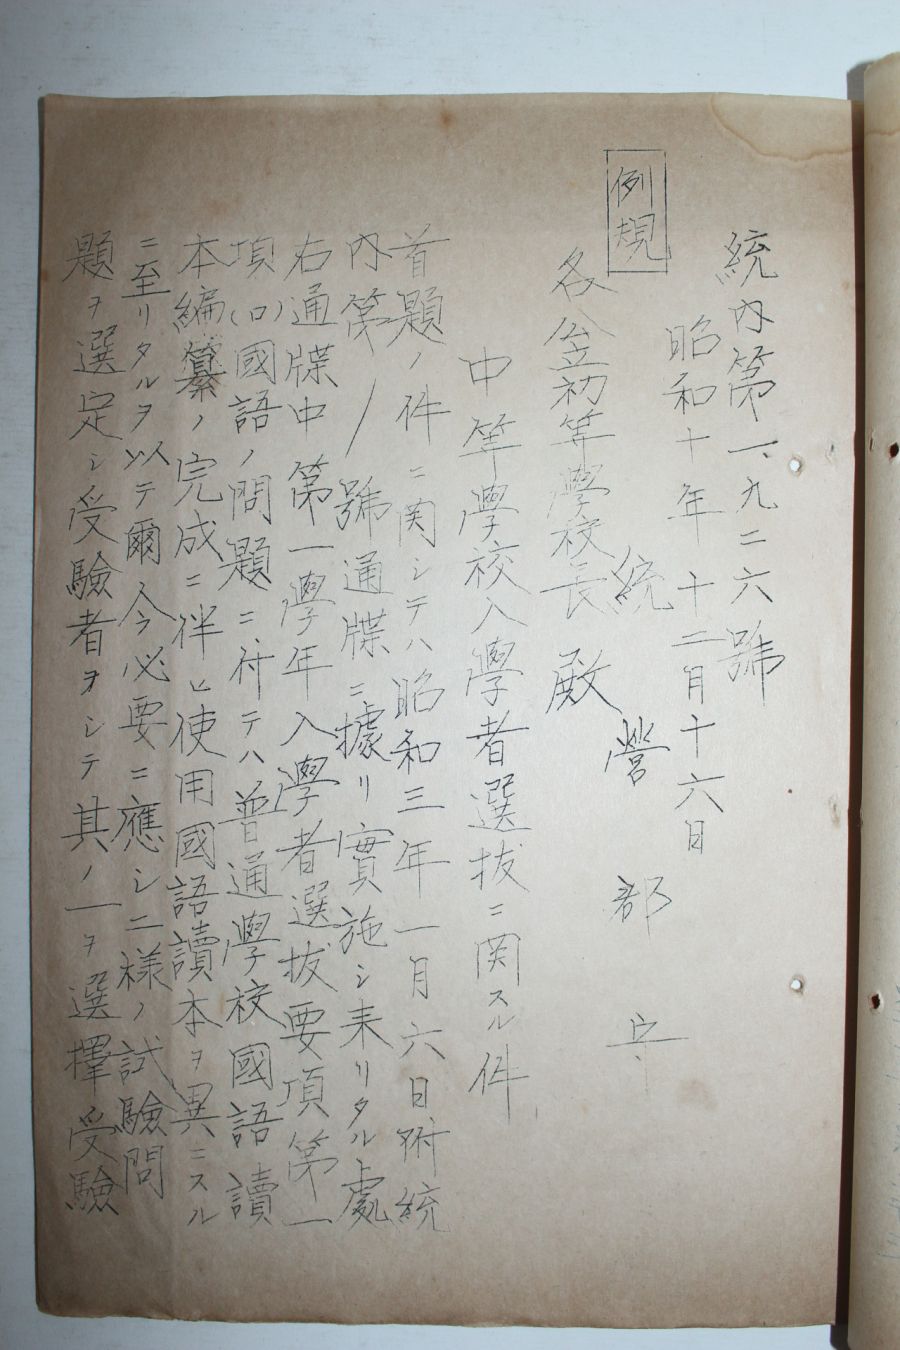 例規
統內第一、九二六號
昭和十年十二月十六日
統營郡守
各公立初等學校長殿
中等學校入學者選拔ニ関スル件
首題ノ件ニ関シテハ昭和三年一月六日附統
內第ノ號通牒ニ據リ實施シ来リタル處
右通牒中第一學年入學者選拔要項第一
項(ロ)國語ノ問題ニ付テハ普通學校國語讀
本編纂ノ完成ニ伴ヒ使用國語讀本ヲ異ニスル
ニ至リタルヲ以テ爾今必要ニ應シ二樣ノ試驗問
題ヲ選定シ受驗者ヲシテ其ノ一ヲ選擇受驗